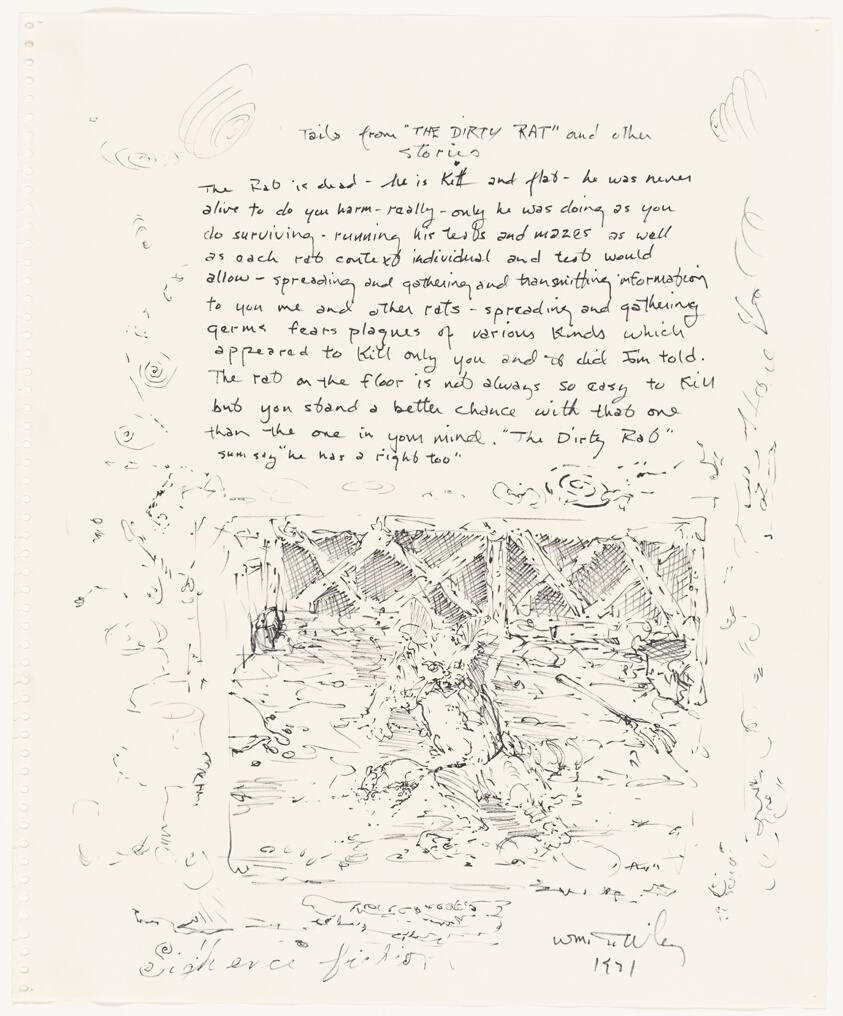 Tails from "THE DIRTY RAT" and other
stories
The Rat is dead - he is Kill and flat - he was never
alive to do you harm - really - only he was doing as you
do surviving - running his tests and mazes as well
as each rat context individual and test would
allow - spreading and gathering and transmitting information
to you me and other rats - spreading and gathering
germs fears plagues of various kinds which
appeared to kill only you and did I'm told.
The rat on the floor is not always so easy to kill
but you stand a better chance with that one
than the one in your mind. "The Dirty Rat"
sum say "he has a right too"
fiction
Wm. T. Wiley
1971